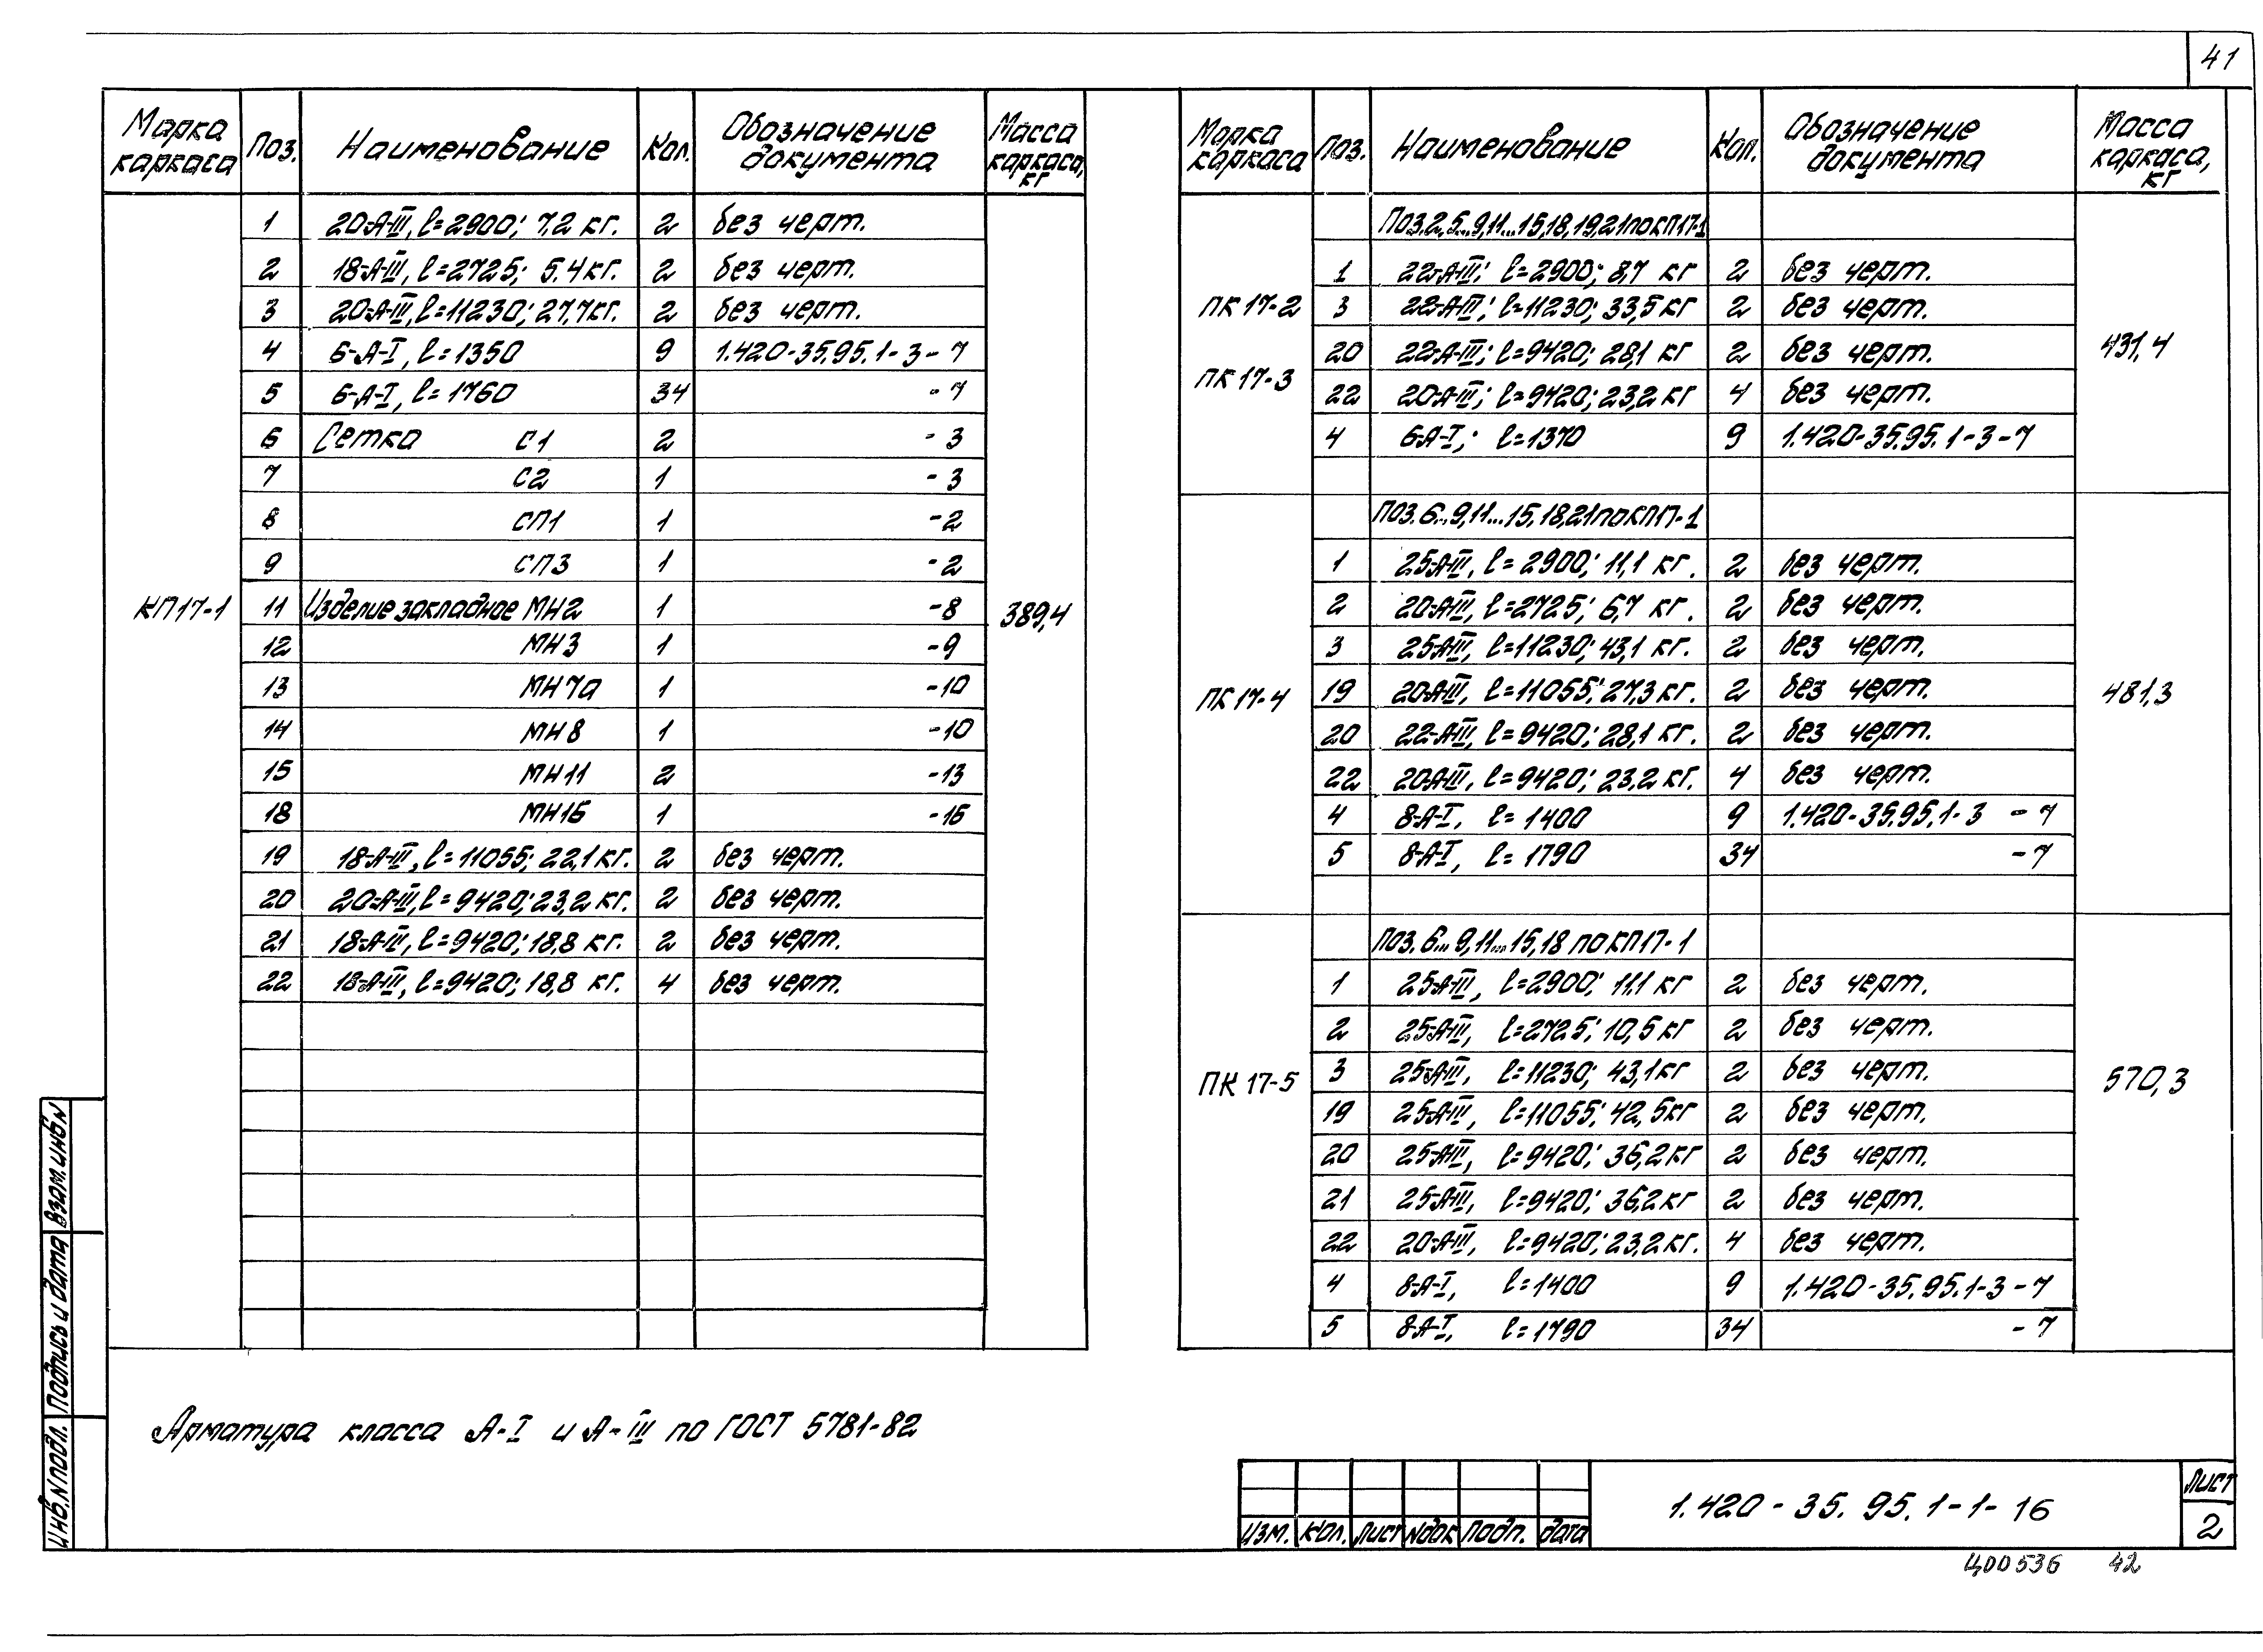 41
Марка каркаса Поз. Наименование Кол. Обозначение документа Масса каркаса, кг
КП17-1 389,4
1 20-А-III, l=2900; 7.2 кг. 2 без черт.
2 18-А-III, l=2725; 5.4 кг. 2 без черт.
3 20-А-III, l=11230; 27,7кг. 2 без черт.
4 6-А-I, l=1350 9 1.420-35.95.1-3-7
5 6-А-I, l=1760 34 -7
6 Сетка С1 2 -3
7 С2 1 -3
8 СП1 1 -2
9 СП3 1 -2
11 Изделие закладное МН2 1 -8
12 МН3 1 -9
13 МН7а 1 -10
14 МН8 1 -10
15 МН11 2 -13
18 МН16 1 -16
19 18-А-III, l=11055; 22,1 кг. 2 без черт.
20 20-А-III, l=9420; 23,2 кг. 2 без черт.
21 18-А-III, l=9420; 18,8 кг. 2 без черт.
22 18-А-III, l=9420; 18,8 кг. 4 без черт.
Марка каркаса Поз. Наименование Кол. Обозначение документа Масса каркаса, кг
ПК 17-2
ПК 17-3 431,4
Поз.2,5...9,11...15,18,19,21 по КП17-1
1 22-А-III; l=2900; 8,7 кг 2 без черт.
3 22-А-III; l=11230; 33,5 кг 2 без черт.
20 22-А-III; l=9420; 28,1 кг 2 без черт.
22 20-А-III; l=9420; 23,2 кг 4 без черт.
4 6-А-I; l=1370 9 1.420-35.95.1-3-7
ПК 17-4 481,3
Поз.6...9,11...15,18,21 по КП17-1
1 25-А-III, l=2900; 11,1 кг. 2 без черт.
2 20-А-III, l=2725; 6,7 кг. 2 без черт.
3 25-А-III, l=11230; 43,1 кг. 2 без черт.
19 20-А-III, l=11055; 27,3 кг. 2 без черт.
20 22-А-III, l=9420; 28,1 кг. 2 без черт.
22 20-А-III, l=9420; 23,2 кг. 4 без черт.
4 8-А-I, l=1400 9 1.420-35.95.1-3 -7
5 8-А-I, l=1790 34 -7
ПК 17-5 570,3
Поз.6...9,11...15,18 по КП17-1
1 25-А-III, l=2900; 11,1 кг 2 без черт.
2 25-А-III, l=2725; 10,5 кг 2 без черт.
3 25-А-III, l=11230; 43,1 кг 2 без черт.
19 25-А-III, l=11055; 42,5 кг 2 без черт.
20 25-А-III, l=9420; 36,2 кг 2 без черт.
21 25-А-III, l=9420; 36,2 кг 2 без черт.
22 20-А-III, l=9420; 23,2 кг. 4 без черт.
4 8-А-I, l=1400 9 1.420-35.95.1-3-7
5 8-А-I, l=1790 34 -7
Арматура класса А-I и А-III по ГОСТ 5781-82
Изм. Кол. Лист Nдок Подп. Дата
1.420-35.95.1-1-16
Лист
2
Ц00536 42
Инв.N подл. Подпись и дата Взам.инв.N